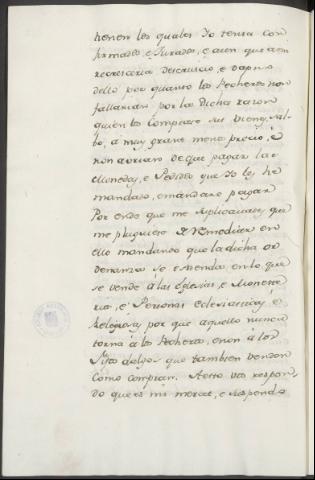 tienen los quales Yo tenia con
firmados, e Jurados, e aun que a em
necesaria deservicio, e dapno
dello por quanto los Pecheros non
fallarian por la dicha razon
quien les comprase sus vienes, sal
bo, á muy grant menos precio, é
non avrian de que pagar las
Monedas, e Pedidos que Yo les he
mandado, e mandare pagar
Por ende que me suplicavades que
me pluguiese de Remediar en
ello mandando que la dicha or
denanza se estienda en lo que
se vende á las Iglesias, e Moneste
rios, é Personas eclesiasticas, é
Religiosas, por que aquello nunca
torna á los Pecheros, e non á los
Fijos dalgos que tambien venden
como compran. A esto vos respon
do que es mi merced, e suspendo